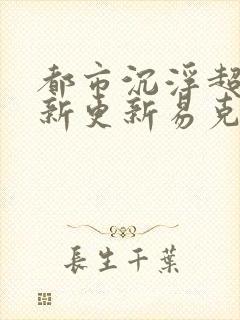 都市沉浮超
新更新易克
長生千葉